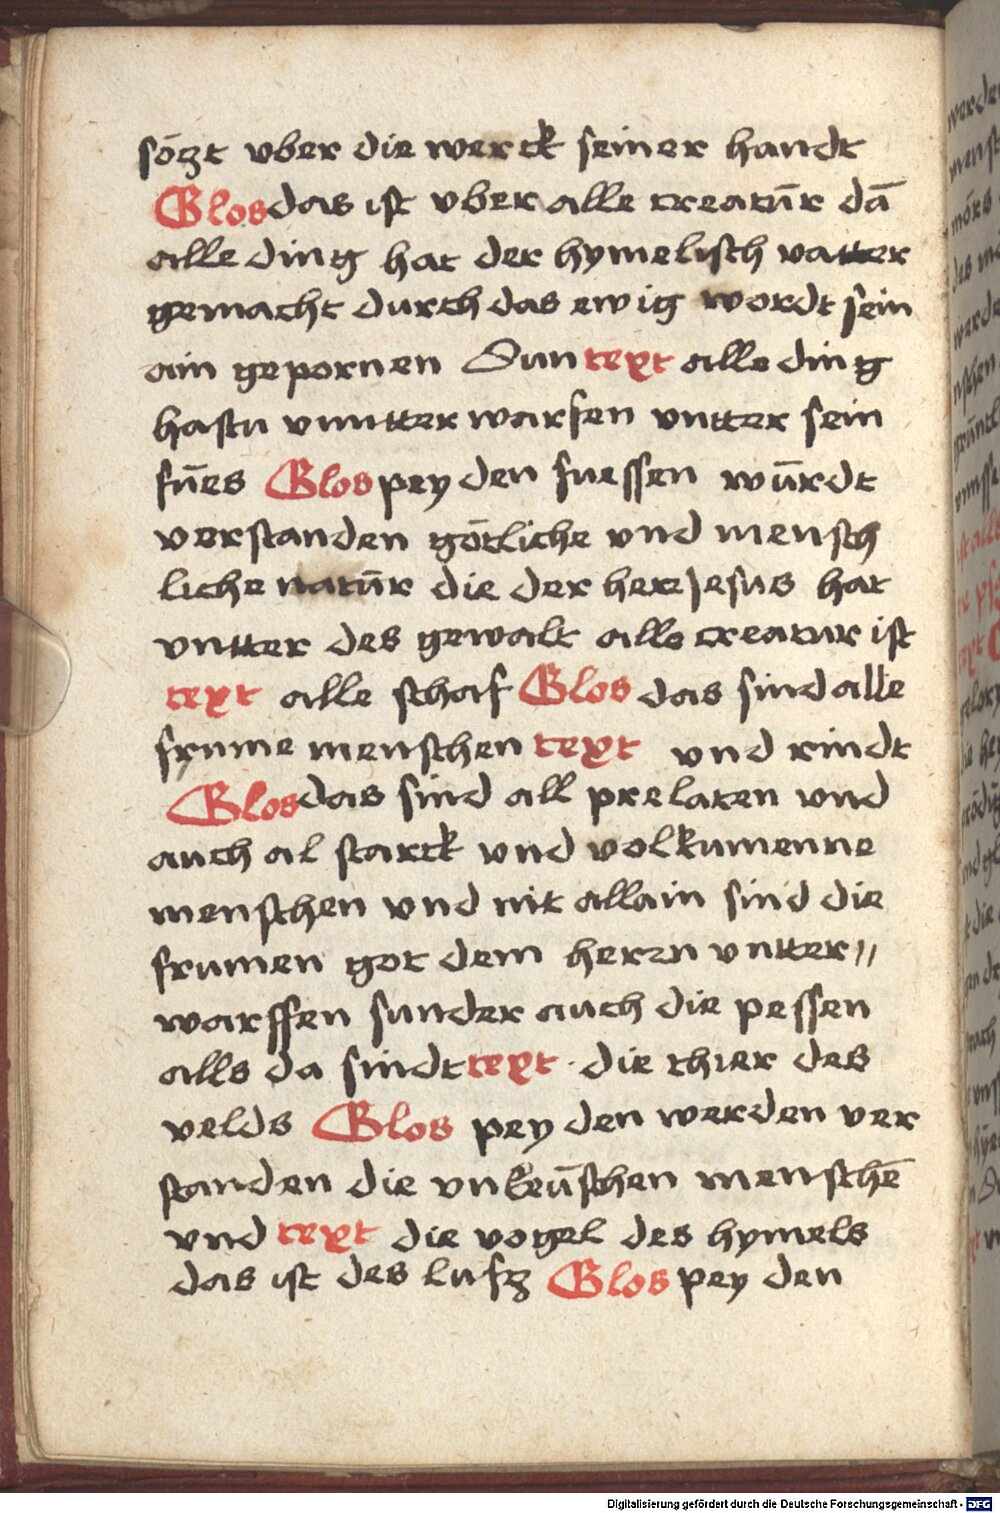 sözt vber die werck seiner handt
Glos das ist vber alle creatūr dā
alle ding hat der hymelisch vatter
gemacht durch das ewig wordt sein
ain gepornen Sun text alle ding
hastu vnntter warfen vntter sein
fūes Glos pey den fuessen wūrdt
verstanden götliche vnd mensch
liche natūr die der her Jesus hat
vntter des gewalt alle creatur ist
text alle schaf Glos das sind alle
frume menschen text vnd rindt
Glos das sind all prelaten vnd
auch al starck vnd volkumenne
menschen vnd nit allain sind die
frumen got dem herzn vntter〃
warffen sunder auch die pessen
alls da sindt text · die thier des
velds Glos pey den werden ver
standen die vnkeūschen menschē
vnd text die vogel des hymels
das ist des lufz Glos pey den
Digitalisierung gefördert durch die Deutsche Forschungsgemeinschaft - DFG